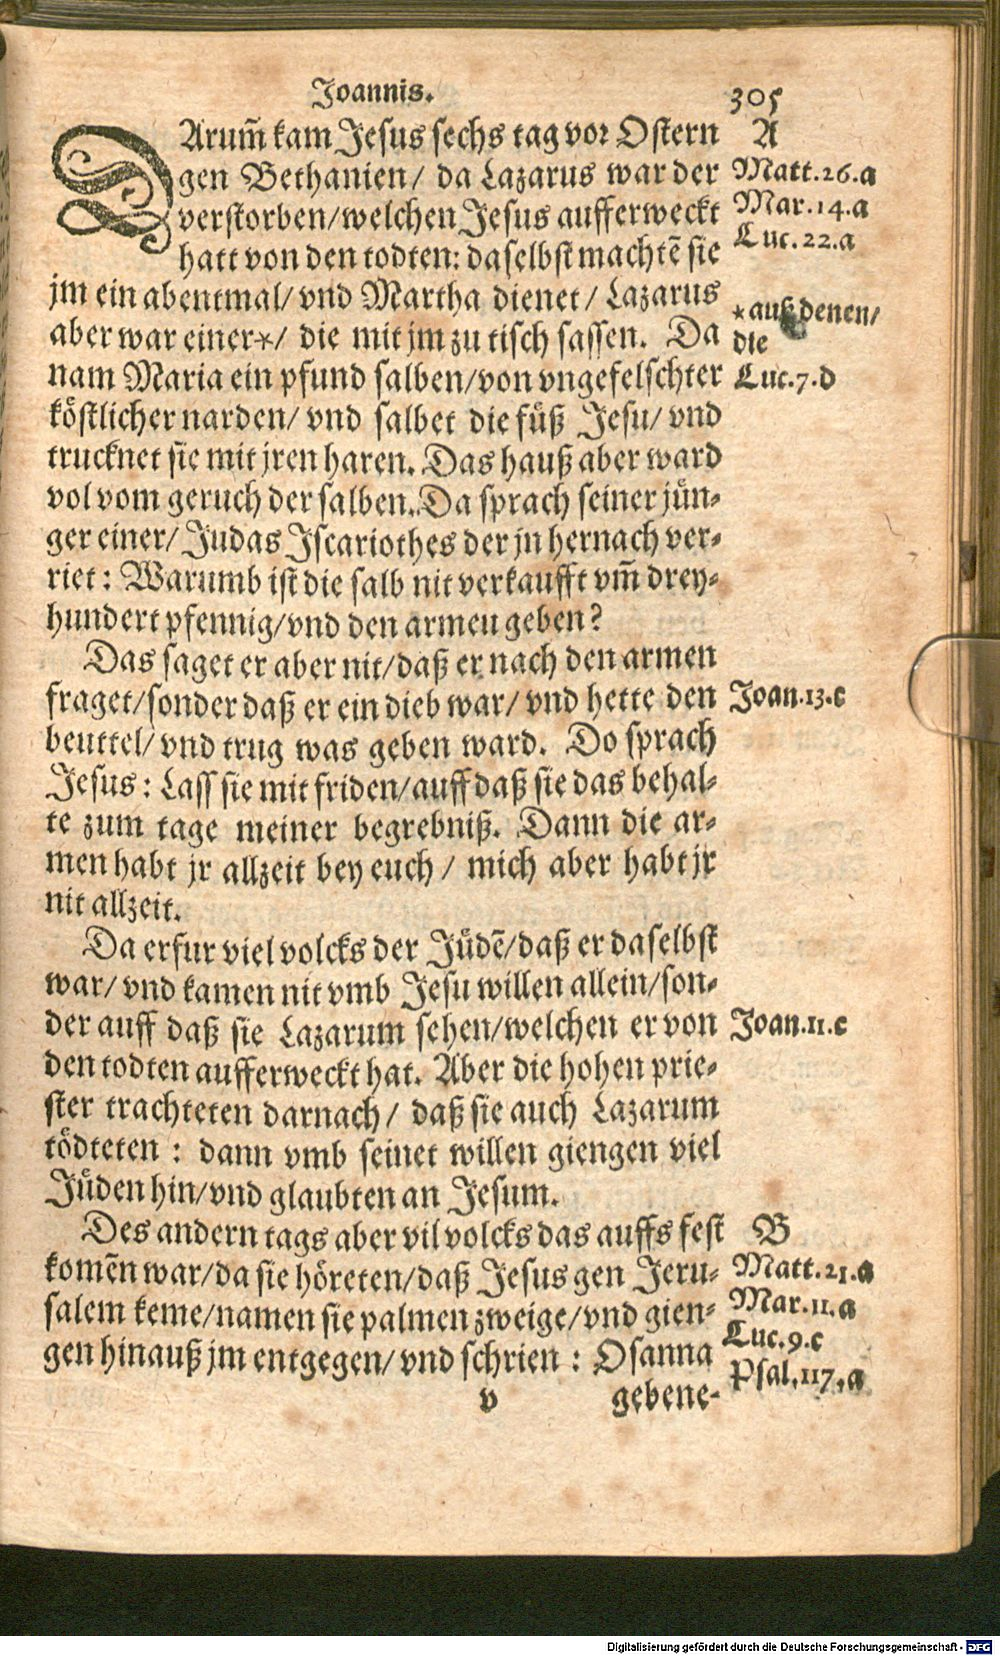 Joannis. 305
DArum̃ kam Jesus sechs tag vor Ostern A
gen Bethanien/ da Lazarus war der Matt.26.a
verstorben/welchen Jesus aufferweckt Mar.14.a
hatt von den todten: daselbst machtẽ sie Luc.22.a
jm ein abentmal/ vnd Martha dienet/ Lazarus
aber war einer*/ die mit jm zu tisch sassen. Da *auß denen/
die
nam Maria ein pfund salben/von vngefelschter Luc.7.d
köstlicher narden/ vnd salbet die füß Jesu/ vnd
trucknet sie mit jren haren. Das hauß aber ward
vol vom geruch der salben. Da sprach seiner jün-
ger einer/ Judas Iscariothes der jn hernach ver-
riet: Warumb ist die salb nit verkaufft vm̃ drey-
hundert pfennig/vnd den armen geben?
Das saget er aber nit/daß er nach den armen
fraget/sonder daß er ein dieb war/ vnd hette den Joan.13.c
beuttel/ vnd trug was geben ward. Do sprach
Jesus: Lass sie mit friden/auff daß sie das behal-
te zum tage meiner begrebniß. Dann die ar-
men habt jr allzeit bey euch/ mich aber habt jr
nit allzeit.
Da erfur viel volcks der Jüdẽ/daß er daselbst
war/ vnd kamen nit vmb Jesu willen allein/son-
der auff daß sie Lazarum sehen/welchen er von Joan.11.c
den todten aufferweckt hat. Aber die hohen prie-
ster trachteten darnach/ daß sie auch Lazarum
tödteten: dann vmb seinet willen giengen viel
Jüden hin/vnd glaubten an Jesum.
Des andern tags aber vil volcks das auffs fest B
komẽn war/da sie höreten/daß Jesus gen Jeru- Matt.21.a
salem keme/namen sie palmen zweige/vnd gien- Mar.11.a
Luc.9.c
gen hinauß jm entgegen/ vnd schrien: Osanna Psal.117.a
v gebene-
Digitalisierung gefördert durch die Deutsche Forschungsgemeinschaft - DFG